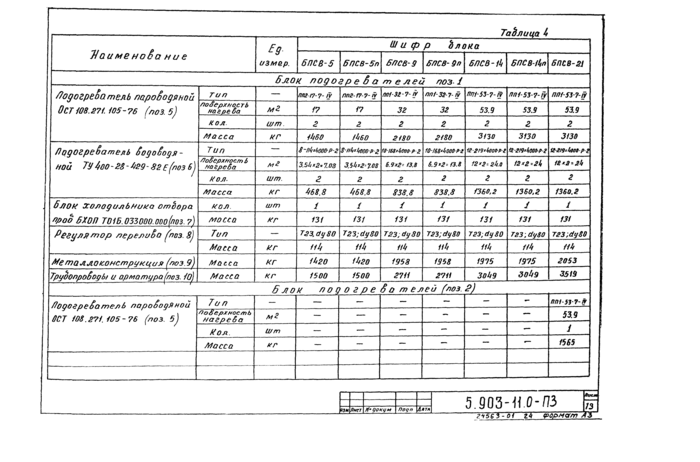 Таблица 4
Наименование Ед. измер. Шифр блока
БПСВ-5 БПСВ-5п БПСВ-9 БПСВ-9п БПСВ-14 БПСВ-14п БПСВ-21
Блок подогревателей поз.1
Подогреватель пароводяной ОСТ 108.271.105-76 (поз.5) Тип — ПП2-17-7-IV ПП2-17-7-IV ПП1-32-7-IV ПП1-32-7-IV ПП1-53-7-IV ПП1-53-7-IV ПП1-53-7-IV
поверхность нагрева м2 17 17 32 32 53.9 53.9 53.9
Кол. шт. 2 2 2 2 2 2 2
Масса кг 1460 1460 2180 2180 3130 3130 3130
Подогреватель водоводяной ТУ 400-28-429-82Е (поз 6) Тип —
Поверхность нагрева м2 3,54×2=7.08 3,54×2=7.08 6.9×2=13.8 6.9×2=13.8 12×2=24.0 12×2=24 12×2=24
Кол. шт 2 2 2 2 2 2 2
Масса кг 468,8 468,8 838,8 838,8 1360,2 1360,2 1360,2
Блок холодильника отбора проб БХОП Т01Б.033000.000 (поз.7) Кол. шт 1 1 1 1 1 1 1
Масса кг 131 131 131 131 131 131 131
Регулятор перелива (поз.8) Тип — Т23; dу80 Т23; dу80 Т23; dу80 Т23; dу80 Т23; dу80 Т23; dу80 Т23; dу80
Масса кг 114 114 114 114 114 114 114
Металлоконструкция (поз.9) Масса кг 1420 1420 1958 1958 1975 1975 2053
Трубопроводы и арматура (поз.10) Масса кг 1500 1500 2711 2711 3049 3049 3519
Блок подогревателей (поз.2)
Подогреватель пароводяной ОСТ 108.271.105-76 (поз. 5) Тип — — — — — — ПП1-53-7-IV
поверхность нагрева м2 — — — — — — 53.9
Кол. шт — — — — — — 1
Масса кг — — — — — — 1565
Изм Лист № докум Подп Дата
5.903-11.0-ПЗ
Лист
13
24563-01 24 Формат А3